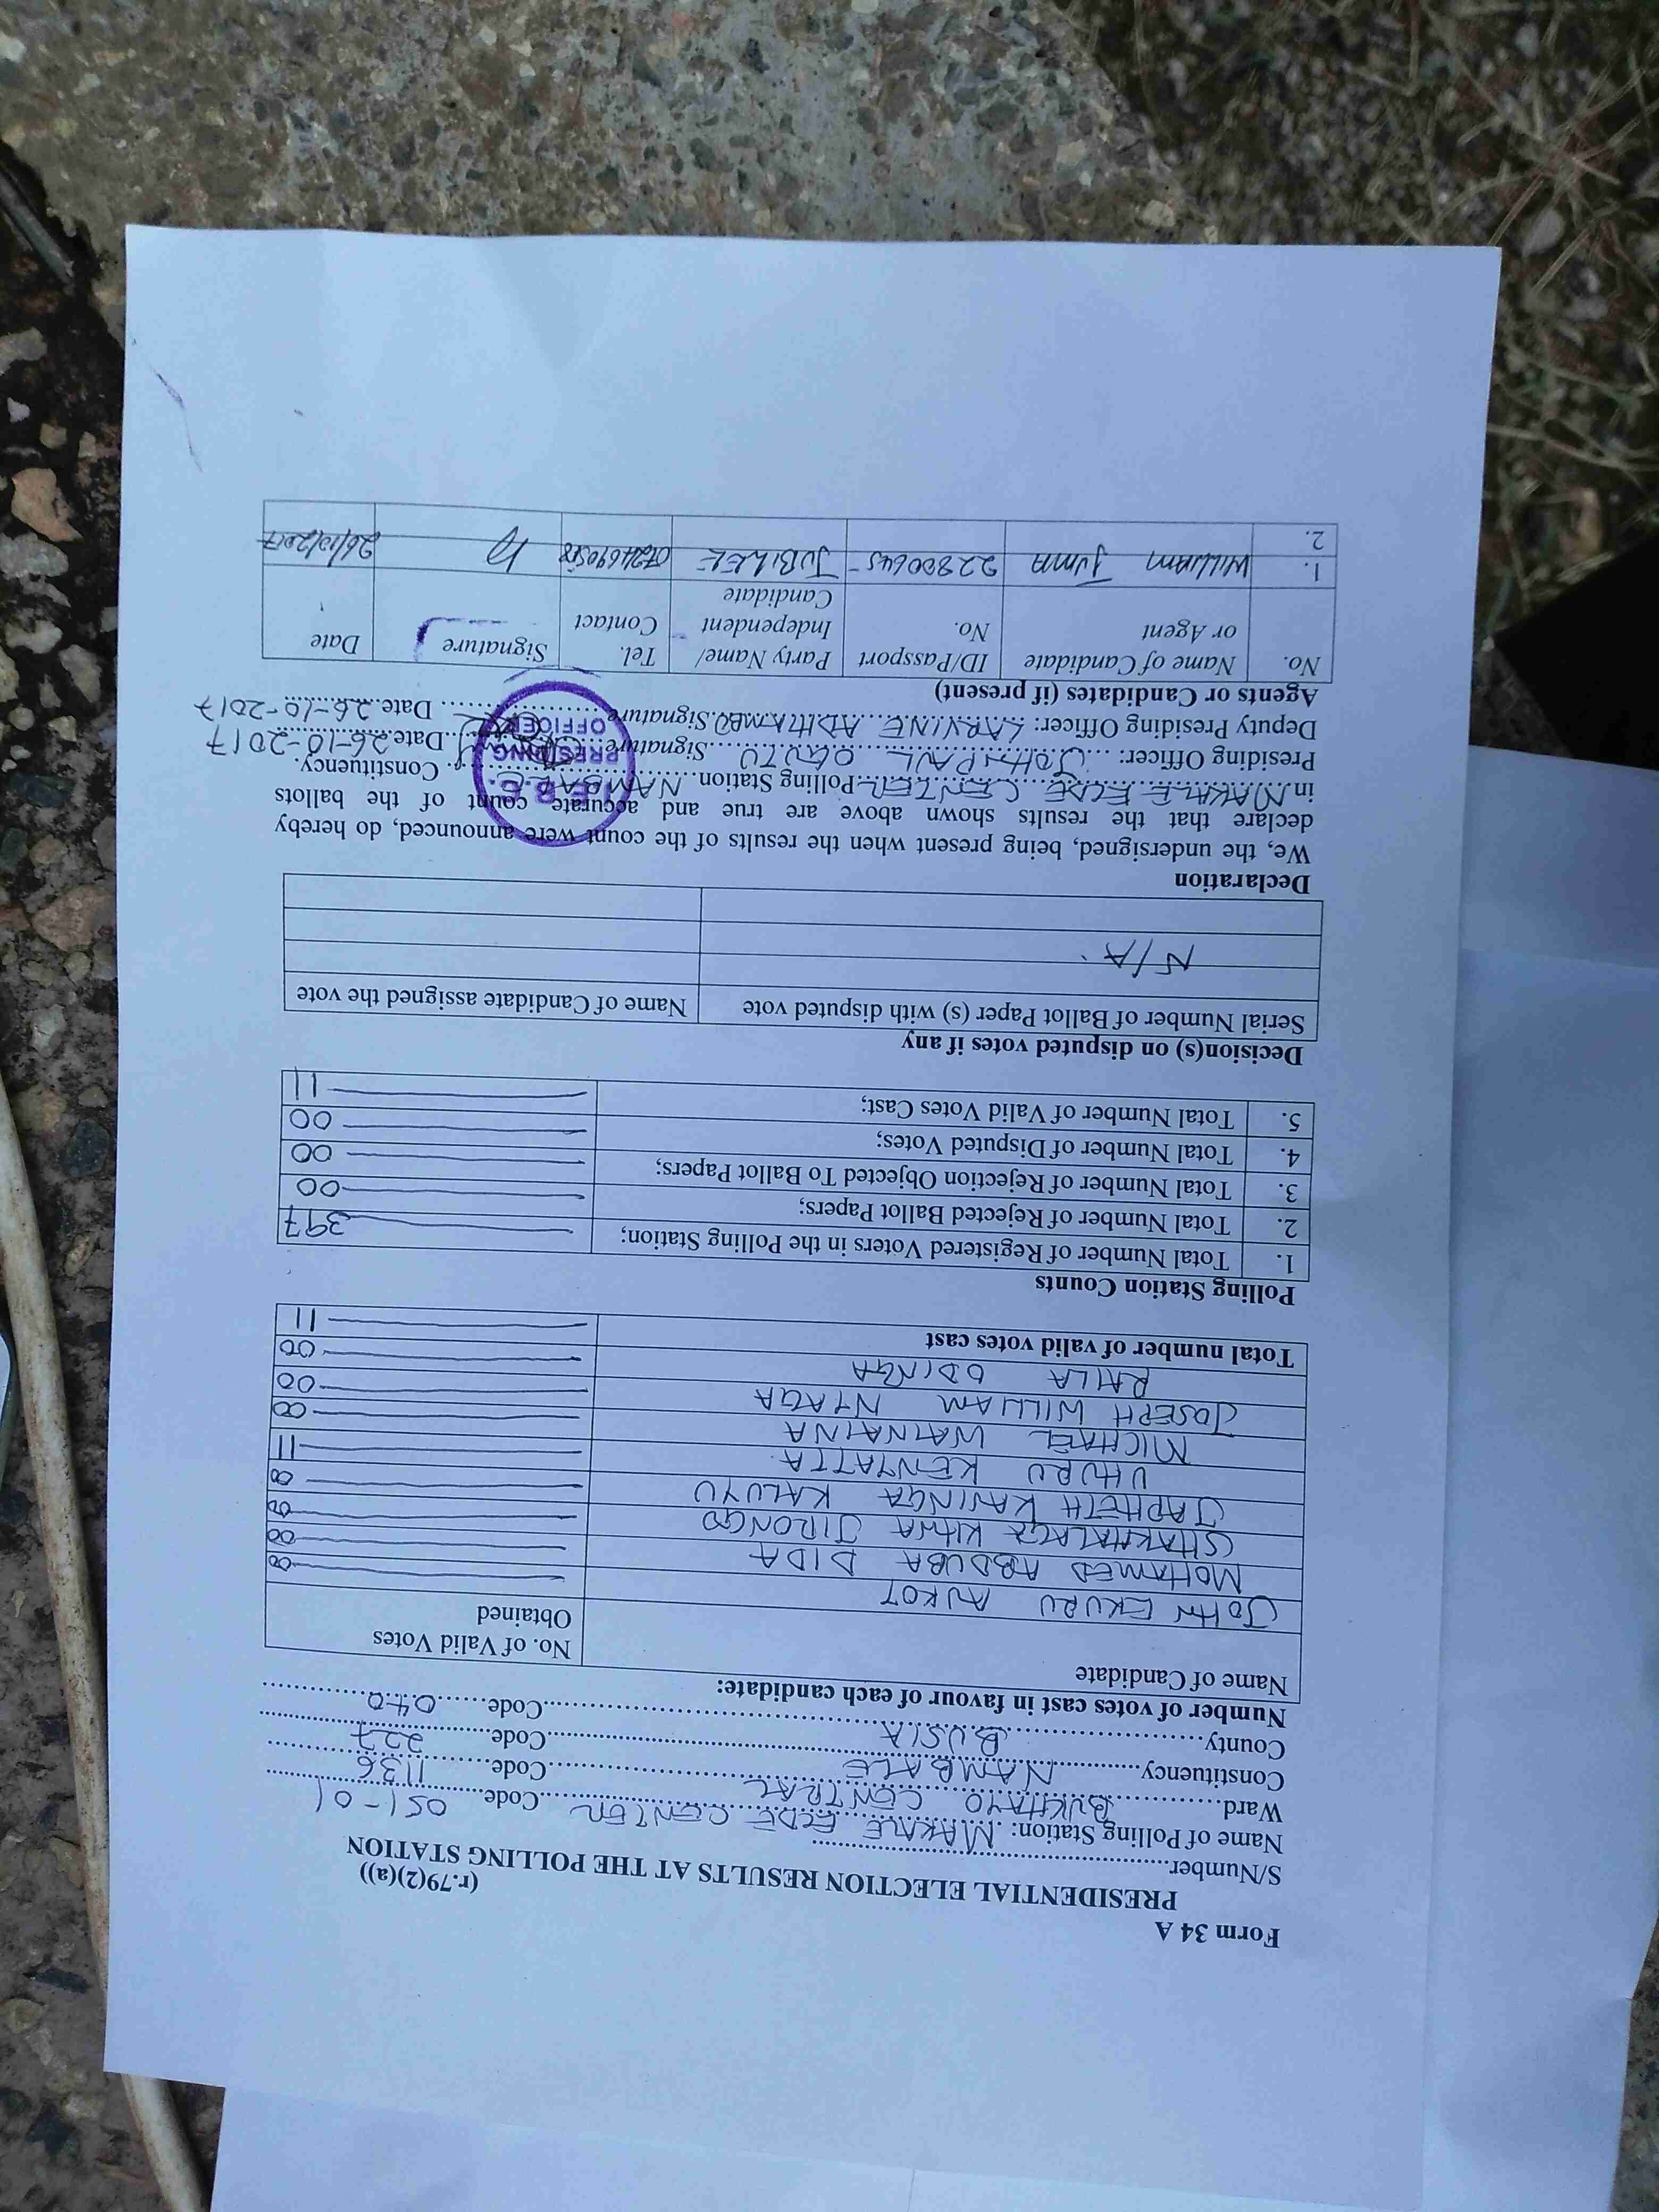 Form 34 A
(r.79(2)(a))
PRESIDENTIAL ELECTION RESULTS AT THE POLLING STATION
S/Number
Name of Polling Station: MAKALE ECDE CENTER Code 051-01
Ward BUKHAYO CENTRAL Code 1136
Constituency NAMBALE Code 227
County BUSIA Code 040
Number of votes cast in favour of each candidate:
Name of Candidate No. of Valid Votes Obtained
JOHN EKURU AUKOT 00
MOHAMED ABDUBA DIDA 00
SHAKHALAGA KHWA JIRONGO 00
JAPHETH KAVINGA KALUYU 00
UHURU KENYATTA 11
MICHAEL WAINAINA 00
JOSEPH WILLIAM NYAGA 00
RAILA ODINGA 00
Total number of valid votes cast 11
Polling Station Counts
1. Total Number of Registered Voters in the Polling Station; 397
2. Total Number of Rejected Ballot Papers; 00
3. Total Number of Rejection Objected To Ballot Papers; 00
4. Total Number of Disputed Votes; 00
5. Total Number of Valid Votes Cast; 11
Decision(s) on disputed votes if any
Serial Number of Ballot Paper (s) with disputed vote Name of Candidate assigned the vote
N/A
Declaration
We, the undersigned, being present when the results of the count were announced, do hereby
declare that the results shown above are true and accurate count of the ballots
in MAKALE ECDE CENTER Polling Station NAMBALE Constituency.
Presiding Officer: JOHN PAUL Signature Date 26-10-2017
Deputy Presiding Officer: LARVINE ADHIAMBO Signature Date 26-10-2017
I.E.B.C.
PRESIDING
OFFICER
Agents or Candidates (if present)
No. Name of Candidate or Agent ID/Passport No. Party Name/ Independent Candidate Tel. Contact Signature Date
1. WILLIAM JUMA 22800645 JUBILEE 26/10/2017
2.